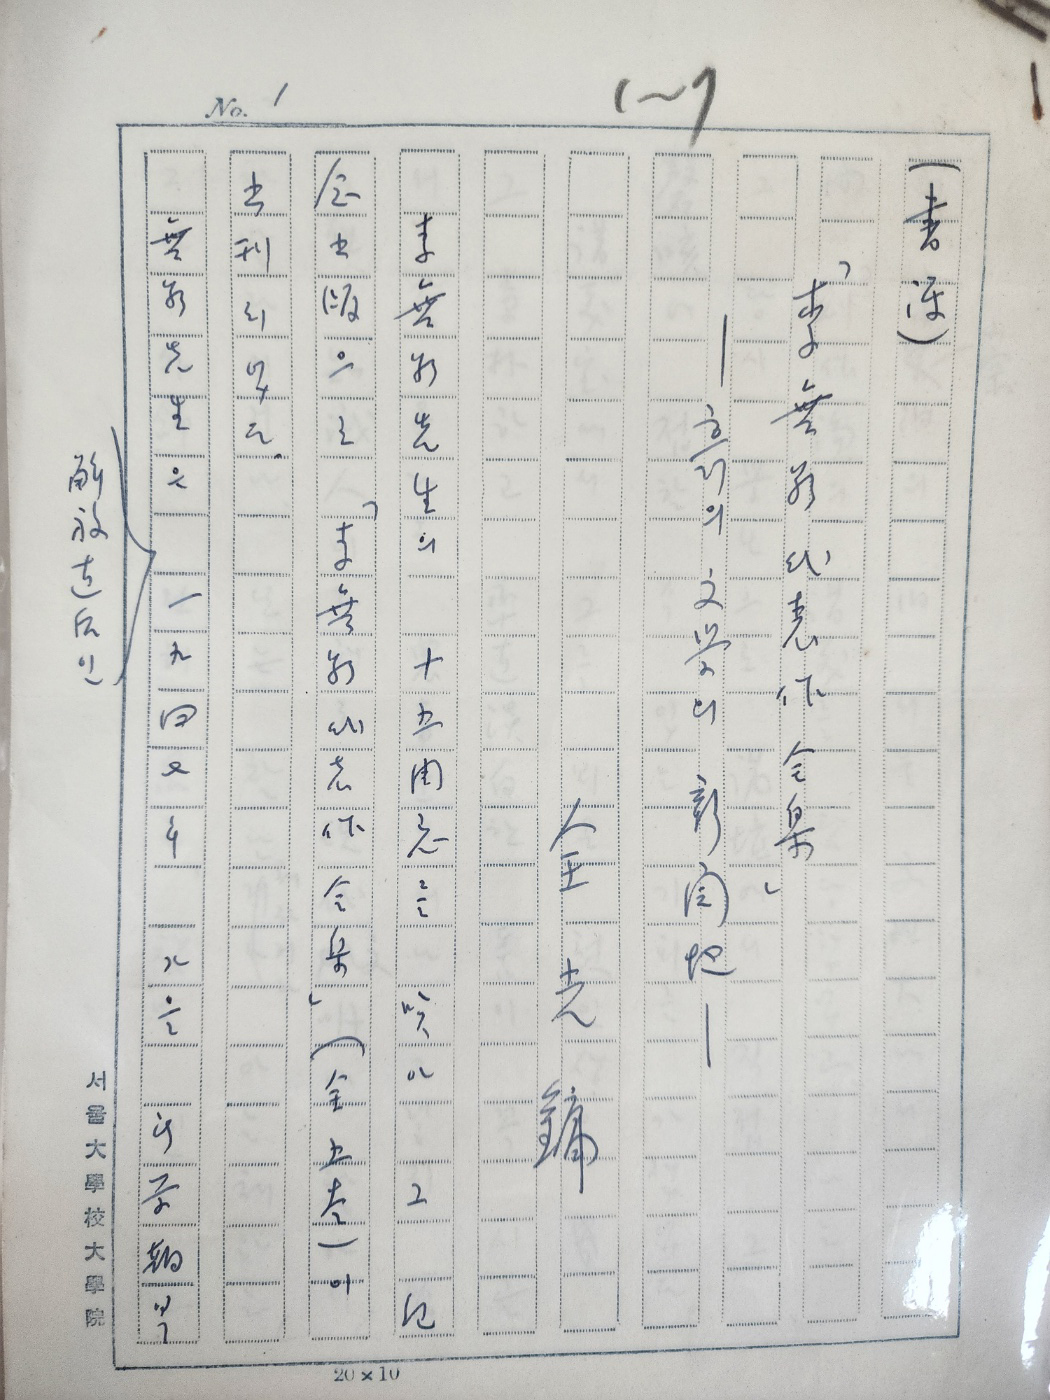 No. 1
1~7
(書評)
「李無影代表作全集」
—흙의 文学의 新開地—
全光鏞
李無影先生의 十五周忌를 맞아 그 記
念出版으로 「李無影代表作全集」(全五卷)이
出刊되었다.
無影先生은 一九四七年 가을
解放直后인
서울大學校大學院
20×10